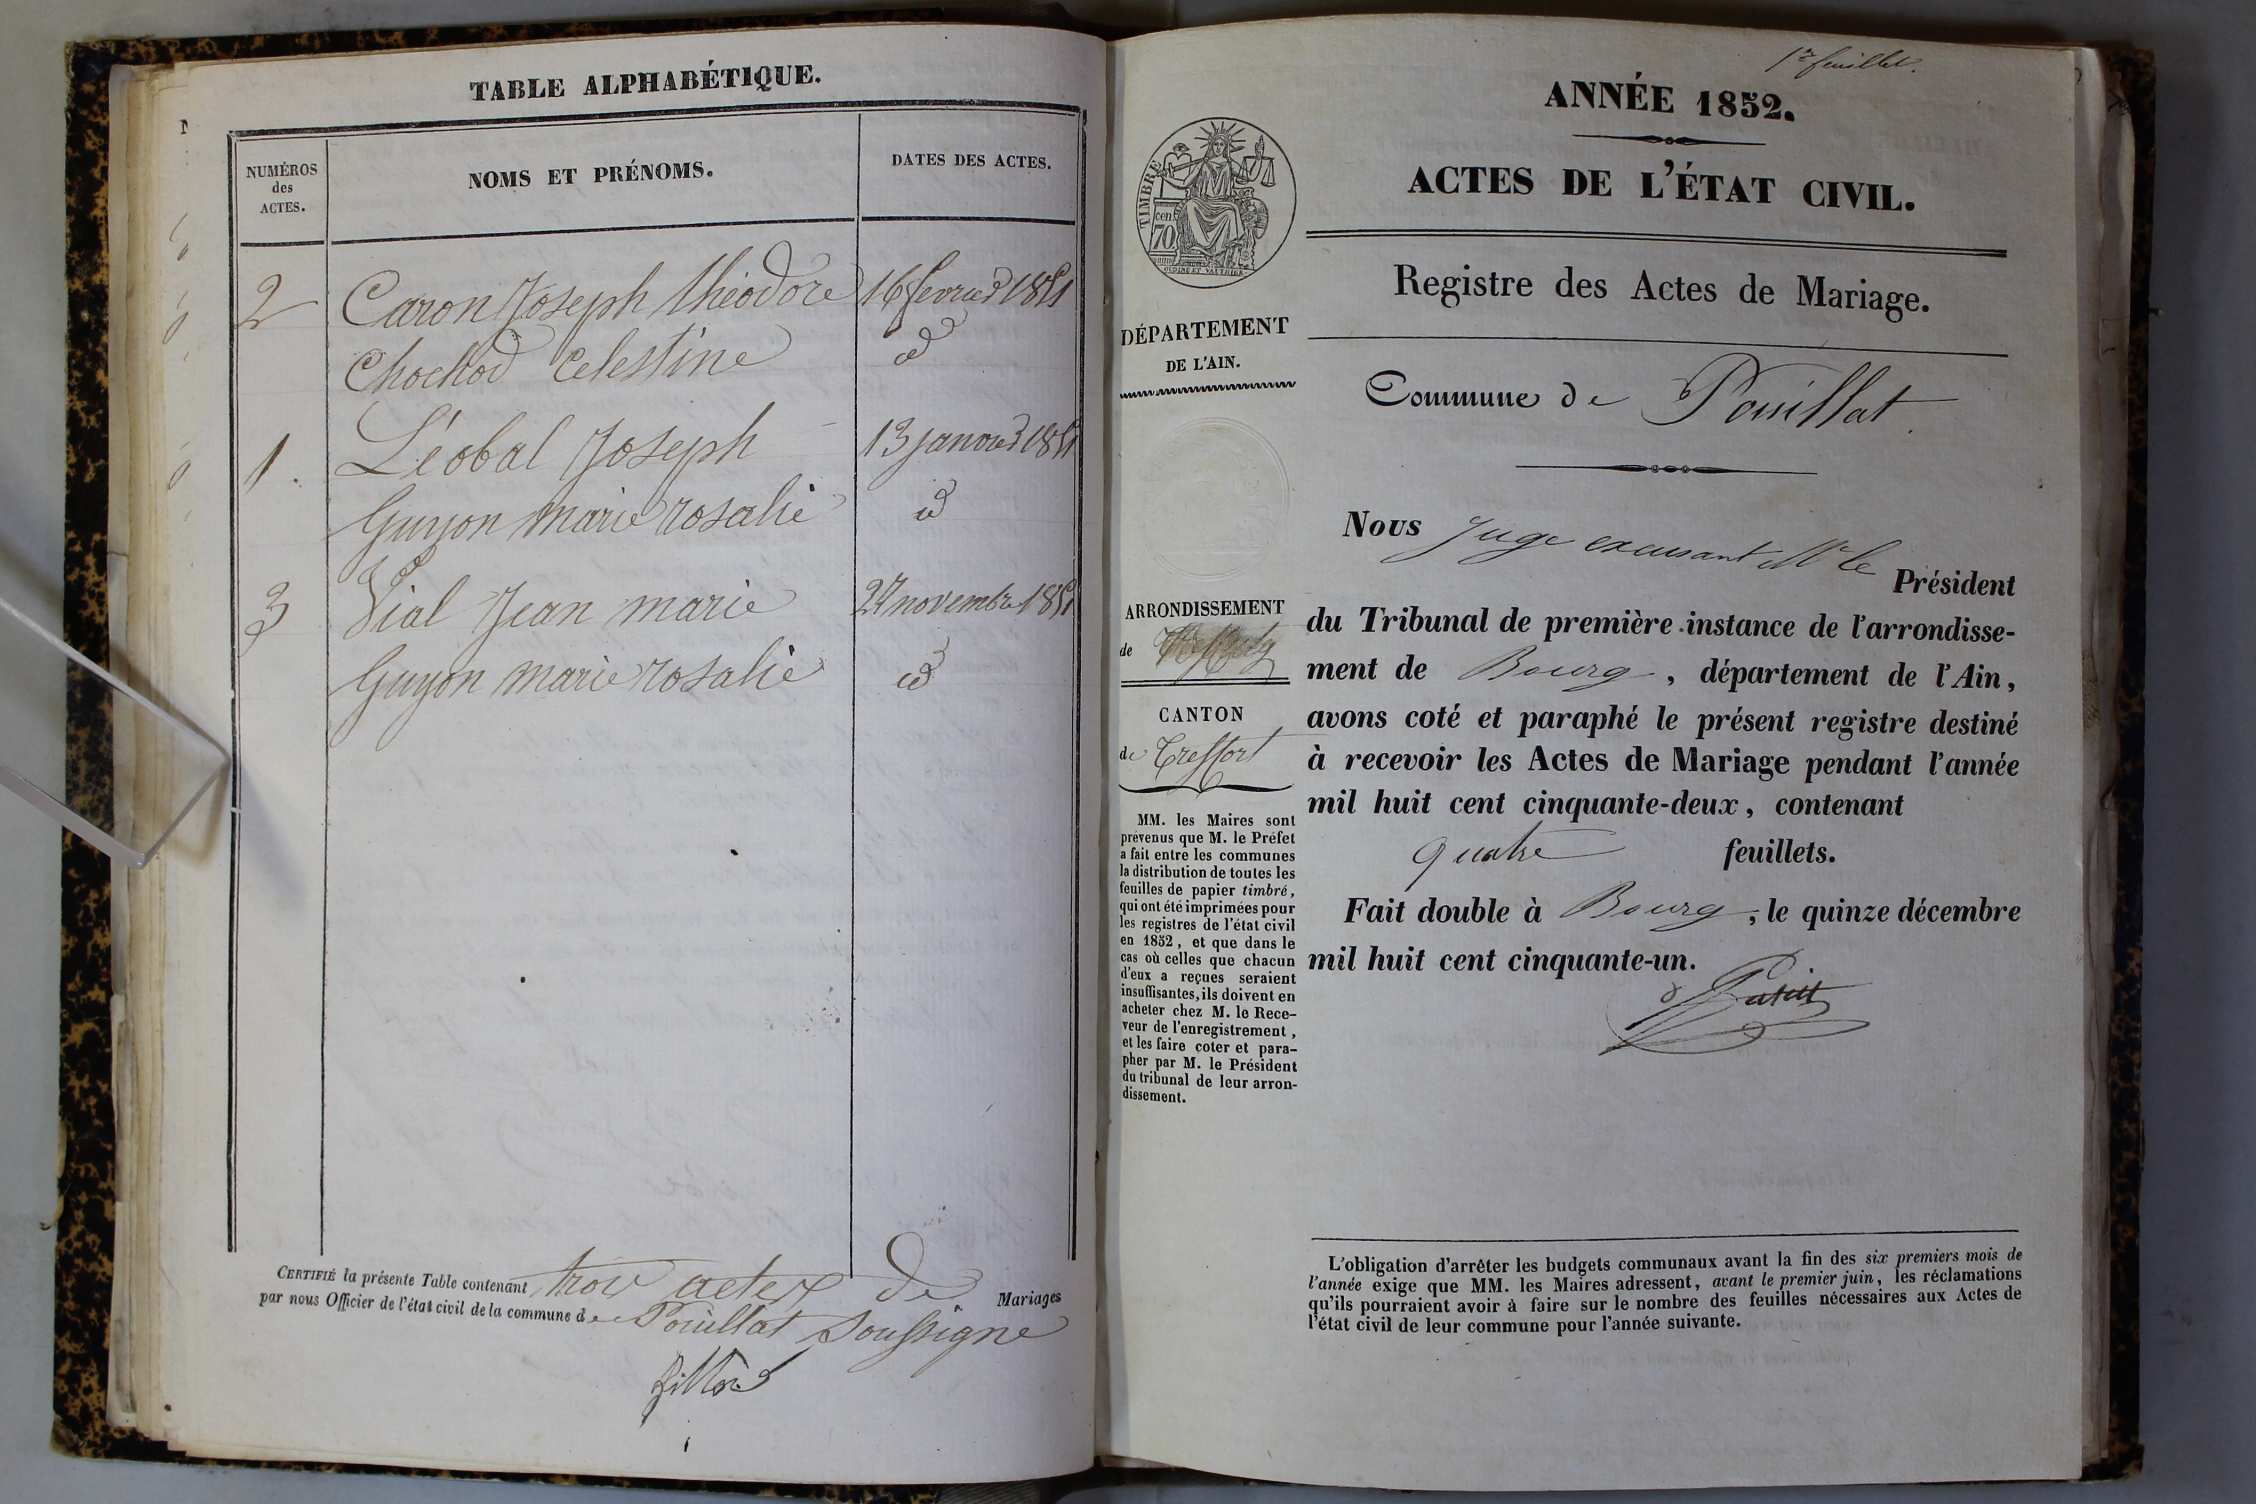 TABLE ALPHABÉTIQUE.
NUMÉROS
des
ACTES.
NOMS ET PRÉNOMS.
DATES DES ACTES.
2 Caron Joseph théodore 16 fevrier 1851
Chochod Celestine id
1. Léobal Joseph 13 janvier 1851
Guyon marie rosalie id
3 Vial Jean marie 27 novembre 1851
Guyon marie rosalie id
CERTIFIÉ la présente Table contenant trois actes de Mariages
par nous Officier de l'état civil de la commune de Pouillat Soussigné
1er feuillet.
ANNÉE 1852.
ACTES DE L'ÉTAT CIVIL.
Registre des Actes de Mariage.
Commune de Pouillat
TIMBRE
70
cen.
DÉPARTEMENT
DE L'AIN.
ARRONDISSEMENT
de
CANTON
de Treffort
MM. les Maires sont
prévenus que M. le Préfet
a fait entre les communes
la distribution de toutes les
feuilles de papier timbré,
qui ont été imprimées pour
les registres de l'état civil
en 1852, et que dans le
cas où celles que chacun
d'eux a reçues seraient
insuffisantes, ils doivent en
acheter chez M. le Rece-
veur de l'enregistrement,
et les faire coter et para-
pher par M. le Président
du tribunal de leur arron-
dissement.
Nous Juge excusant Mr le Président
du Tribunal de première instance de l'arrondisse-
ment de Bourg, département de l'Ain,
avons coté et paraphé le présent registre destiné
à recevoir les Actes de Mariage pendant l'année
mil huit cent cinquante-deux, contenant
quatre feuillets.
Fait double à Bourg, le quinze décembre
mil huit cent cinquante-un.
L'obligation d'arrêter les budgets communaux avant la fin des six premiers mois de
l'année exige que MM. les Maires adressent, avant le premier juin, les réclamations
qu'ils pourraient avoir à faire sur le nombre des feuilles nécessaires aux Actes de
l'état civil de leur commune pour l'année suivante.